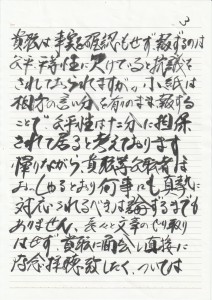 3
貴殿は事実を確認もせず報ずるのは
公平性に欠けていると抗議を
されておられますが。小紙は
相方の言い分を有りのまま報する
ことで、公平性は十二分に担保
されて居ると考えております
憚りながら、貴殿等
おっしゃるとおり何事にも真摯に
対応されるべきは論ずるまでも
ありません、長々と文章のやり取り
はせず、貴殿に面会し直接に
お話拝聴致したく、ついては